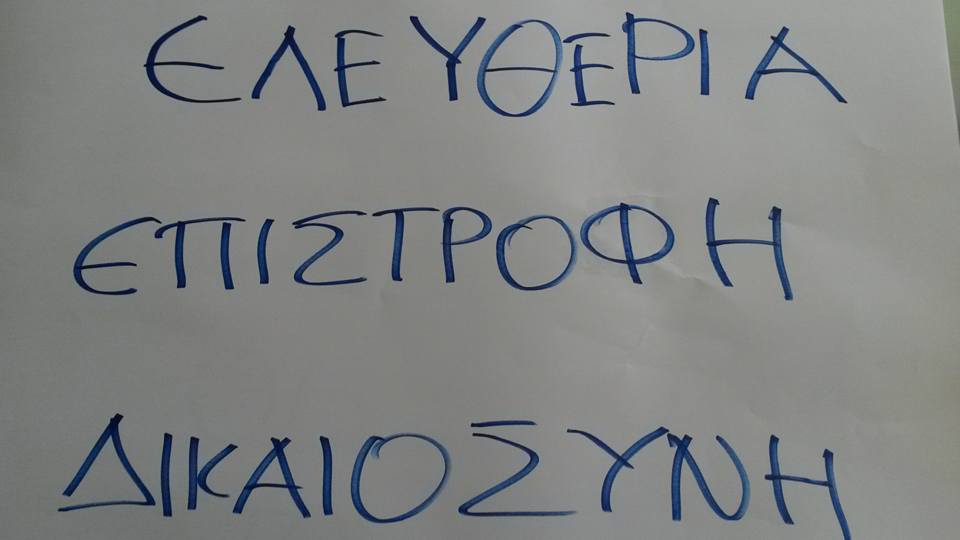 ΕΛΕΥΘΕΡΙΑ
ΕΠΙΣΤΡΟΦΗ
ΔΙΚΑΙΟΣΥΝΗ